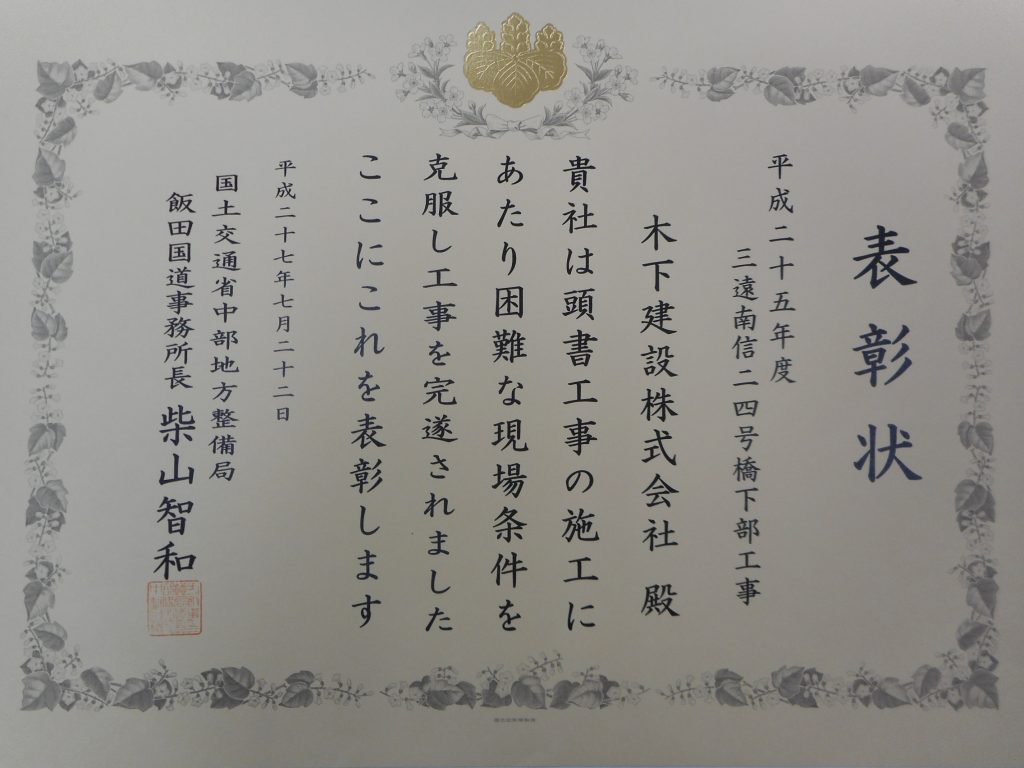 表彰状
平成二十五年度
三遠南信二四号橋下部工事
木下建設株式会社 殿
貴社は頭書工事の施工に
あたり困難な現場条件を
克服し工事を完遂されました
ここにこれを表彰します
平成二十七年七月二十二日
国土交通省中部地方整備局
飯田国道事務所長 柴山智和